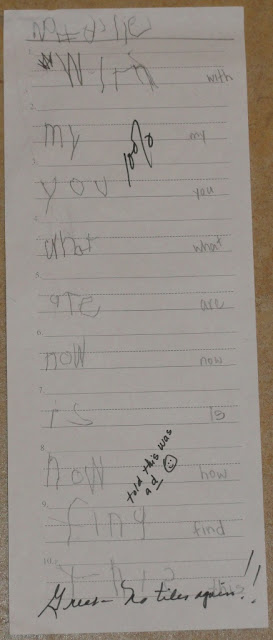 1.
with
2.
my my
100%
3.
you you
4.
what what
5.
are are
6.
now now
7.
is is
told this was
a d ☺
8.
how how
9.
find find
10.
this this
Great - No tiles again!!